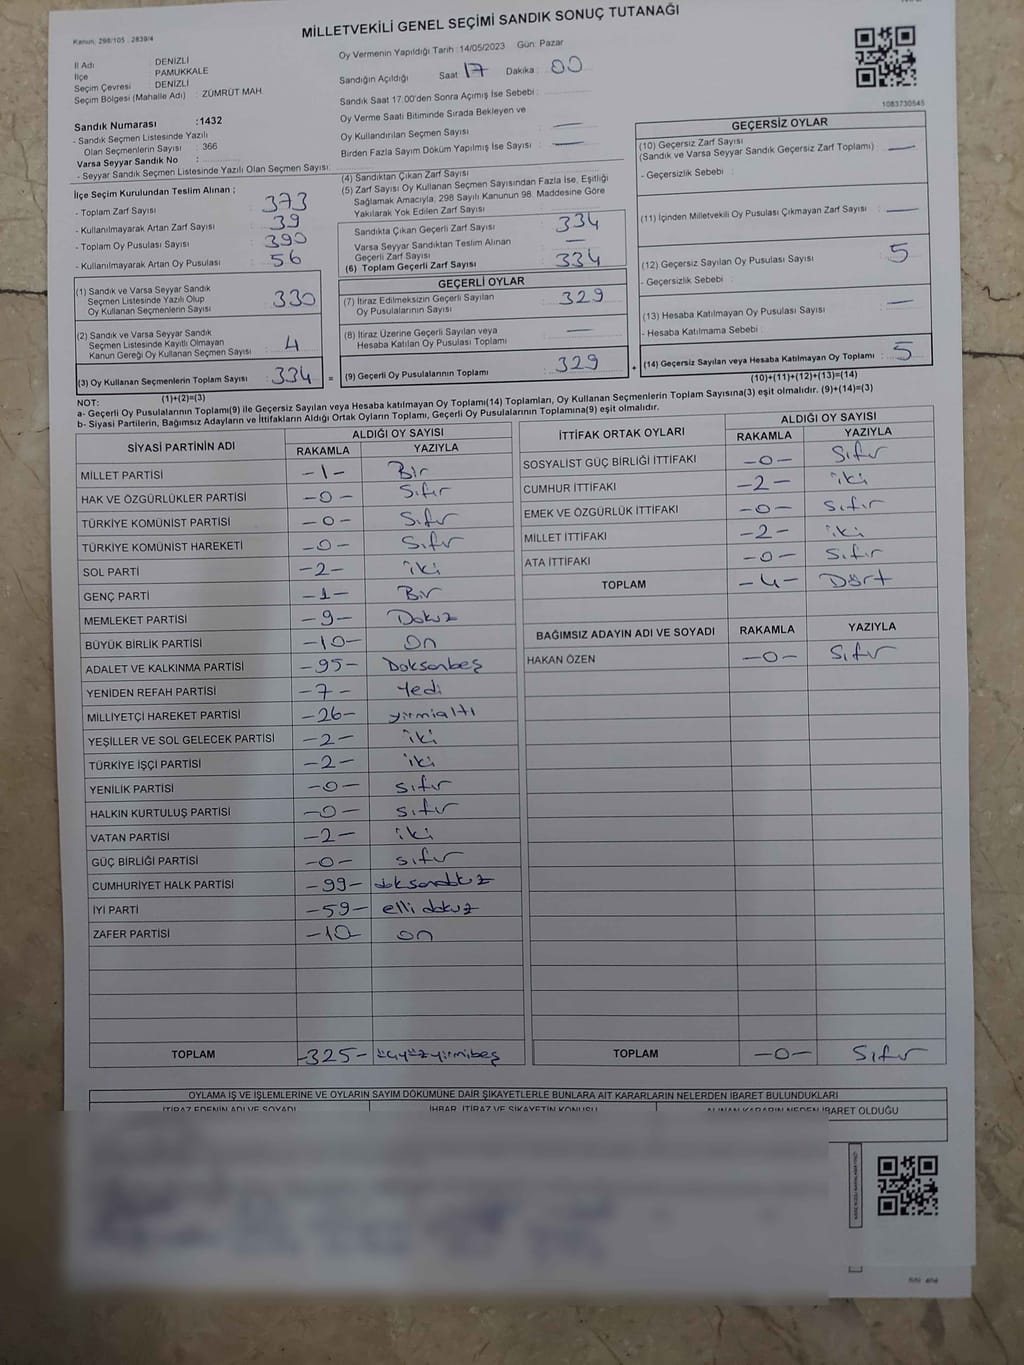 MİLLETVEKİLİ GENEL SEÇİMİ SANDIK SONUÇ TUTANAĞI
Kanun, 298/105 : 2839/4
İl Adı : DENİZLİ
İlçe : PAMUKKALE
Seçim Çevresi : DENİZLİ
Seçim Bölgesi (Mahalle Adı) : ZÜMRÜT MAH.
Sandık Numarası :1432
- Sandık Seçmen Listesinde Yazılı
Olan Seçmenlerin Sayısı : 366
Varsa Seyyar Sandık No :
- Seyyar Sandık Seçmen Listesinde Yazılı Olan Seçmen Sayısı:
İlçe Seçim Kurulundan Teslim Alınan ;
- Toplam Zarf Sayısı : 373
- Kullanılmayarak Artan Zarf Sayısı : 39
- Toplam Oy Pusulası Sayısı : 390
- Kullanılmayarak Artan Oy Pusulası : 56
(1) Sandık ve Varsa Seyyar Sandık
Seçmen Listesinde Yazılı Olup
Oy Kullanan Seçmenlerin Sayısı : 330
(2) Sandık ve Varsa Seyyar Sandık
Seçmen Listesinde Kayıtlı Olmayan
Kanun Gereği Oy Kullanan Seçmen Sayısı : 4
(3) Oy Kullanan Seçmenlerin Toplam Sayısı : 334 =
(1)+(2)=(3)
Oy Vermenin Yapıldığı Tarih :14/05/2023 Gün: Pazar
Sandığın Açıldığı Saat : 17 Dakika : 00
Sandık Saat 17.00'den Sonra Açımış İse Sebebi :
Oy Verme Saati Bitiminde Sırada Bekleyen ve
Oy Kullandırılan Seçmen Sayısı : —
Birden Fazla Sayım Döküm Yapılmış İse Sayısı : —
(4) Sandıktan Çıkan Zarf Sayısı
(5) Zarf Sayısı Oy Kullanan Seçmen Sayısından Fazla İse, Eşitliği
Sağlamak Amacıyla, 298 Sayılı Kanunun 98. Maddesine Göre
Yakılarak Yok Edilen Zarf Sayısı :
Sandıkta Çıkan Geçerli Zarf Sayısı : 334
Varsa Seyyar Sandıktan Teslim Alınan
Geçerli Zarf Sayısı : —
(6) Toplam Geçerli Zarf Sayısı : 334
GEÇERLİ OYLAR
(7) İtiraz Edilmeksizin Geçerli Sayılan
Oy Pusulalarının Sayısı : 329
(8) İtiraz Üzerine Geçerli Sayılan veya
Hesaba Katılan Oy Pusulası Toplamı : —
(9) Geçerli Oy Pusulalarının Toplamı : 329 +
1083730545
GEÇERSİZ OYLAR
(10) Geçersiz Zarf Sayısı
(Sandık ve Varsa Seyyar Sandık Geçersiz Zarf Toplamı) : —
- Geçersizlik Sebebi :
(11) İçinden Milletvekili Oy Pusulası Çıkmayan Zarf Sayısı : —
(12) Geçersiz Sayılan Oy Pusulası Sayısı : 5
- Geçersizlik Sebebi :
(13) Hesaba Katılmayan Oy Pusulası Sayısı : —
- Hesaba Katılmama Sebebi :
(14) Geçersiz Sayılan veya Hesaba Katılmayan Oy Toplamı : 5
(10)+(11)+(12)+(13)=(14)
NOT:
a- Geçerli Oy Pusulalarının Toplamı(9) ile Geçersiz Sayılan veya Hesaba Katılmayan Oy Toplamı(14) Toplamları, Oy Kullanan Seçmenlerin Toplam Sayısına(3) eşit olmalıdır. (9)+(14)=(3)
b- Siyasi Partilerin, Bağımsız Adayların ve İttifakların Aldığı Ortak Oyların Toplamı, Geçerli Oy Pusulalarının Toplamına(9) eşit olmalıdır.
SİYASİ PARTİNİN ADI ALDIĞI OY SAYISI
RAKAMLA YAZIYLA
MİLLET PARTİSİ -1- Bir
HAK VE ÖZGÜRLÜKLER PARTİSİ -0- Sıfır
TÜRKİYE KOMÜNİST PARTİSİ -0- Sıfır
TÜRKİYE KOMÜNİST HAREKETİ -0- Sıfır
SOL PARTİ -2- iki
GENÇ PARTİ -1- Bir
MEMLEKET PARTİSİ -9- Dokuz
BÜYÜK BİRLİK PARTİSİ -10- On
ADALET VE KALKINMA PARTİSİ -95- Doksanbeş
YENİDEN REFAH PARTİSİ -7- Yedi
MİLLİYETÇİ HAREKET PARTİSİ -26- yirmialtı
YEŞİLLER VE SOL GELECEK PARTİSİ -2- iki
TÜRKİYE İŞÇİ PARTİSİ -2- iki
YENİLİK PARTİSİ -0- sıfır
HALKIN KURTULUŞ PARTİSİ -0- sıfır
VATAN PARTİSİ -2- iki
GÜÇ BİRLİĞİ PARTİSİ -0- sıfır
CUMHURİYET HALK PARTİSİ -99- doksandokuz
İYİ PARTİ -59- elli dokuz
ZAFER PARTİSİ -10- on
TOPLAM -325- üçyüzyirmibeş
İTTİFAK ORTAK OYLARI ALDIĞI OY SAYISI
RAKAMLA YAZIYLA
SOSYALİST GÜÇ BİRLİĞİ İTTİFAKI -0- Sıfır
CUMHUR İTTİFAKI -2- iki
EMEK VE ÖZGÜRLÜK İTTİFAKI -0- sıfır
MİLLET İTTİFAKI -2- iki
ATA İTTİFAKI -0- Sıfır
TOPLAM -4- Dört
BAĞIMSIZ ADAYIN ADI VE SOYADI RAKAMLA YAZIYLA
HAKAN ÖZEN -0- Sıfır
TOPLAM -0- Sıfır
OYLAMA İŞ VE İŞLEMLERİNE VE OYLARIN SAYIM DÖKÜMÜNE DAİR ŞİKAYETLERLE BUNLARA AİT KARARLARIN NELERDEN İBARET BULUNDUKLARI
İTİRAZ EDENİN ADI VE SOYADI İHBAR, İTİRAZ VE ŞİKAYETİN KONUSU ALINAN KARARIN NEDEN İBARET OLDUĞU